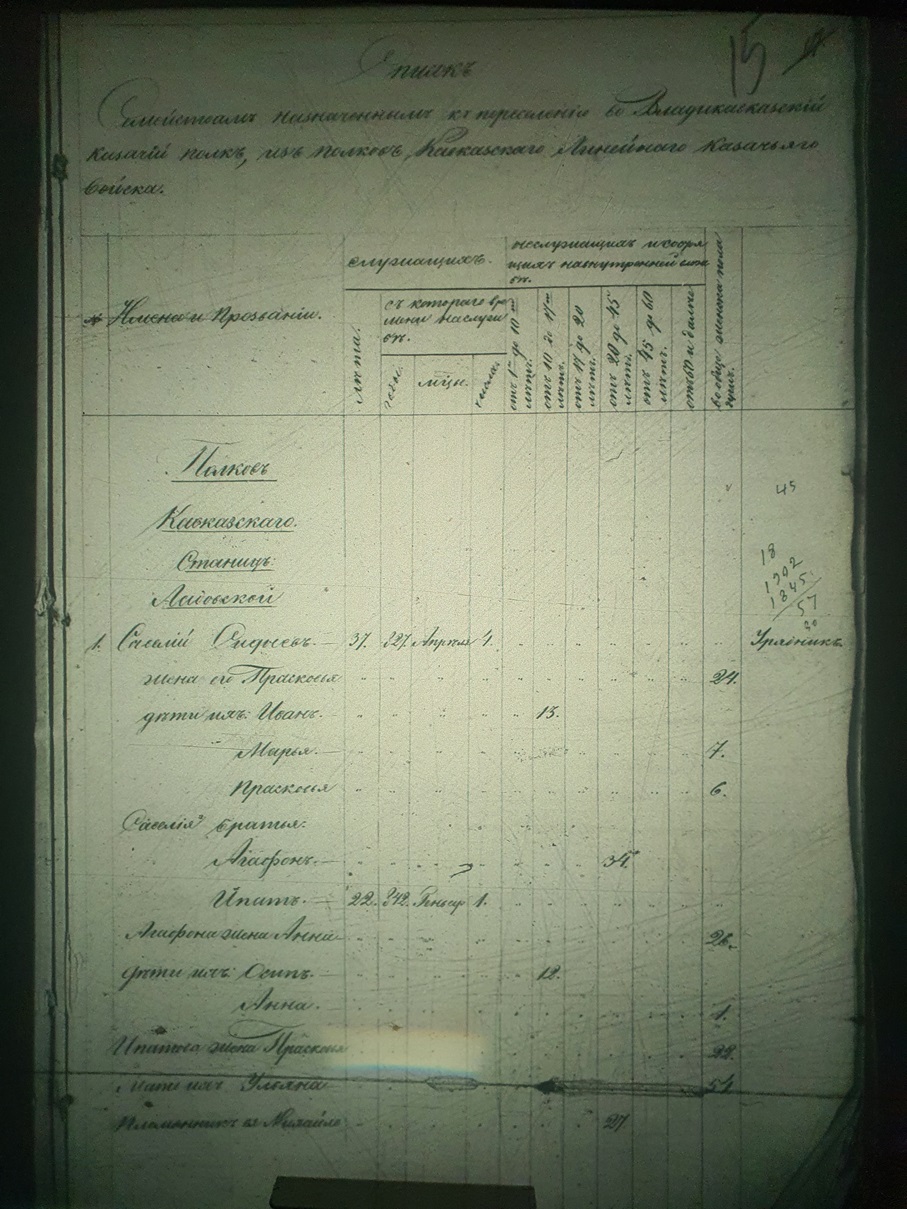 15
Списокъ
Семействамъ назначеннымъ къ переселенію во Владикавказскій
казачій полкъ, изъ полковъ Кавказскаго Линейнаго казачьяго
войска.
Имена и Прозваніи.
служащихъ.
лѣта.
съ котораго вре
мени на службѣ.
годы.
мѣсц.
числа.
неслужащихъ
отъ 1 до 10 лѣтъ.
отъ 10 до 17 лѣтъ.
отъ 17 до 20 лѣтъ.
отъ 20 до 45 лѣтъ.
отъ 45 до 60 лѣтъ.
отъ 60 и далее
вообще женска пола душъ.
Полковъ
45
Кавказскаго.
Станицъ:
18
1902
1845
57
20
1. Савелій 37. 827. Апреля 1. Урядникъ.
жена его Прасковья 24.
дѣти ихъ: Иванъ. 13.
Марья. 7.
Прасковья 6.
Савелія братья:
Агафонъ. 34.
Ипатъ. 22. 842. Генвар 1.
Агафона жена Анна 26.
дѣти ихъ: Осипъ. 12.
Анна. 1.
Ипатова жена Прасковья 22.
Мать ихъ Ульяна 51.
Племянникъ ея Михайло 27